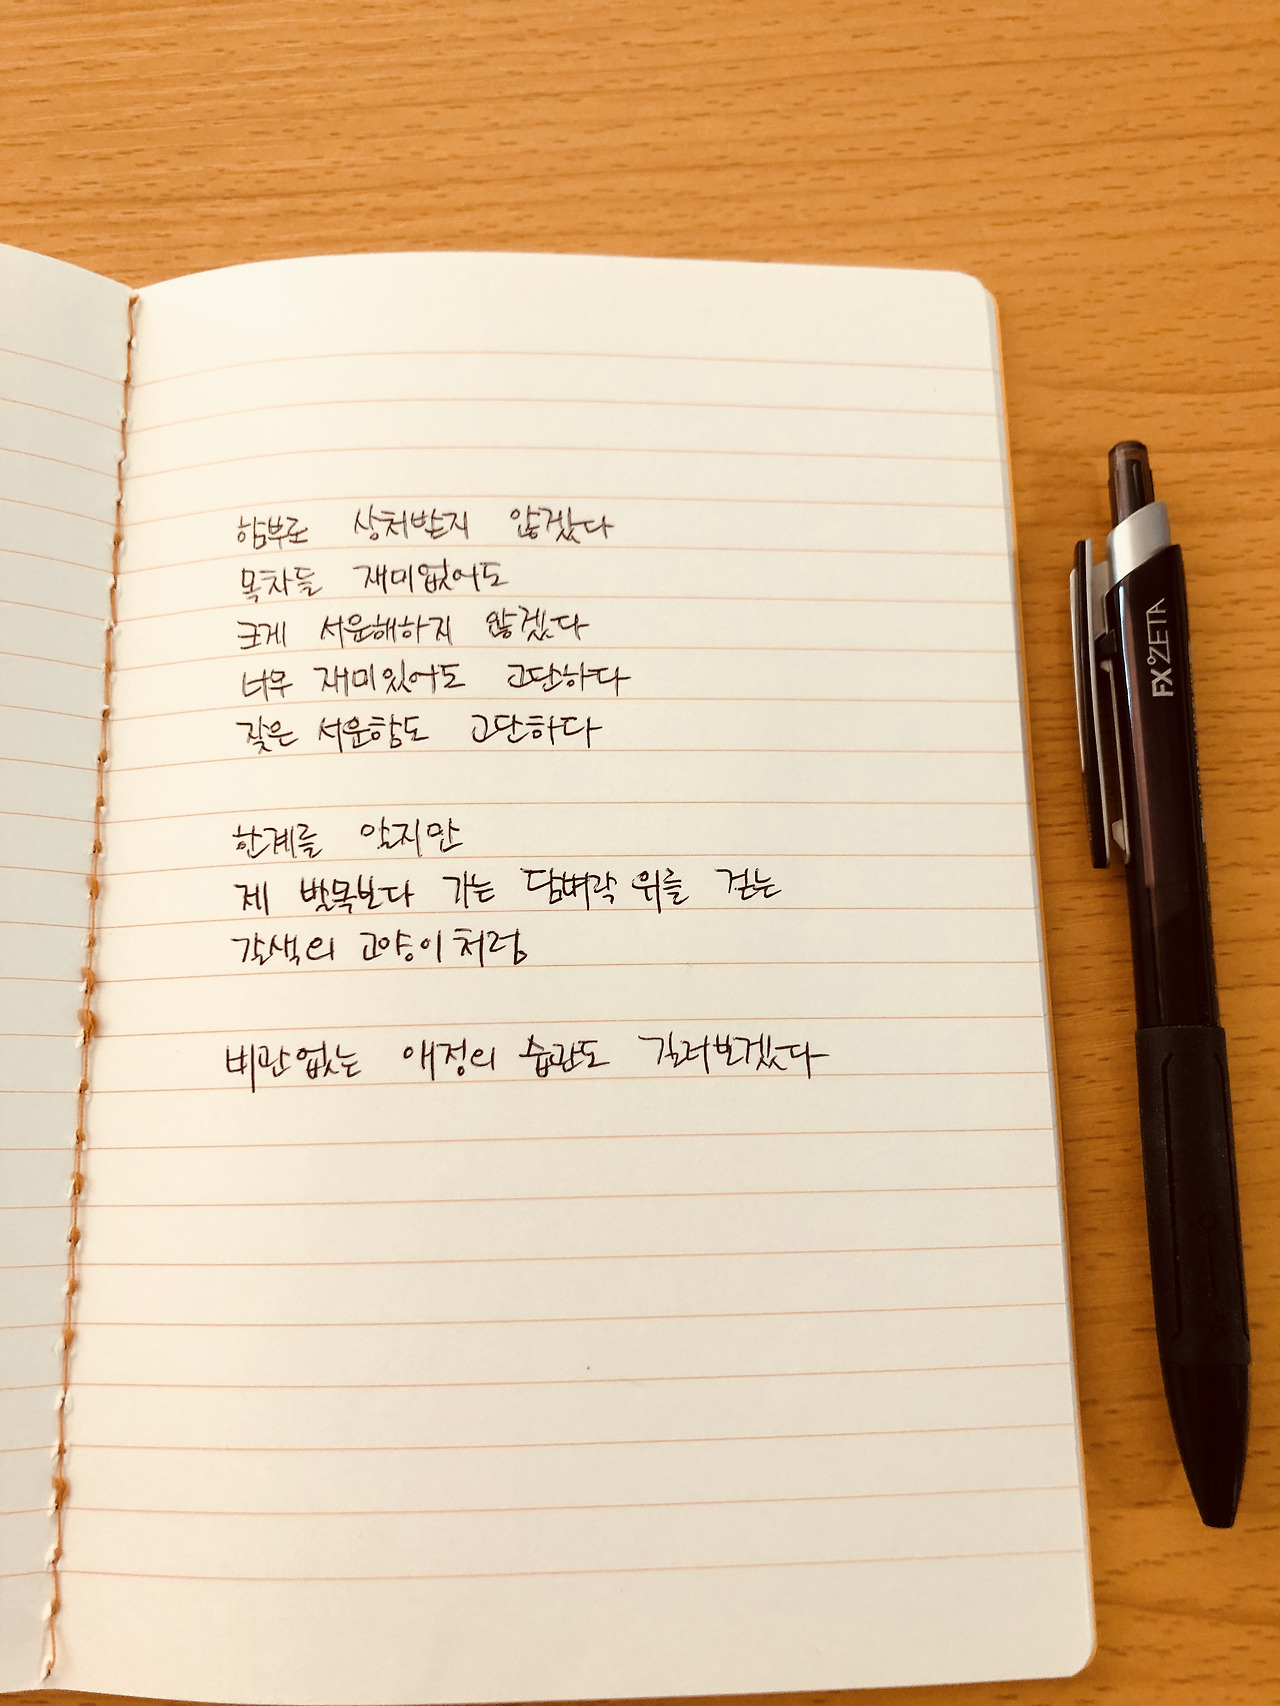 함부로 상처받지 않겠다
목차들 재미없어도
크게 서운해하지 않겠다
너무 재미있어도 고단하다
잦은 서운함도 고단하다
한계를 알지만
제 발목보다 가는 담벼락 위를 걷는
갈색의 고양이처럼
비관 없는 애정의 습관도 길러보겠다
FX ZETA